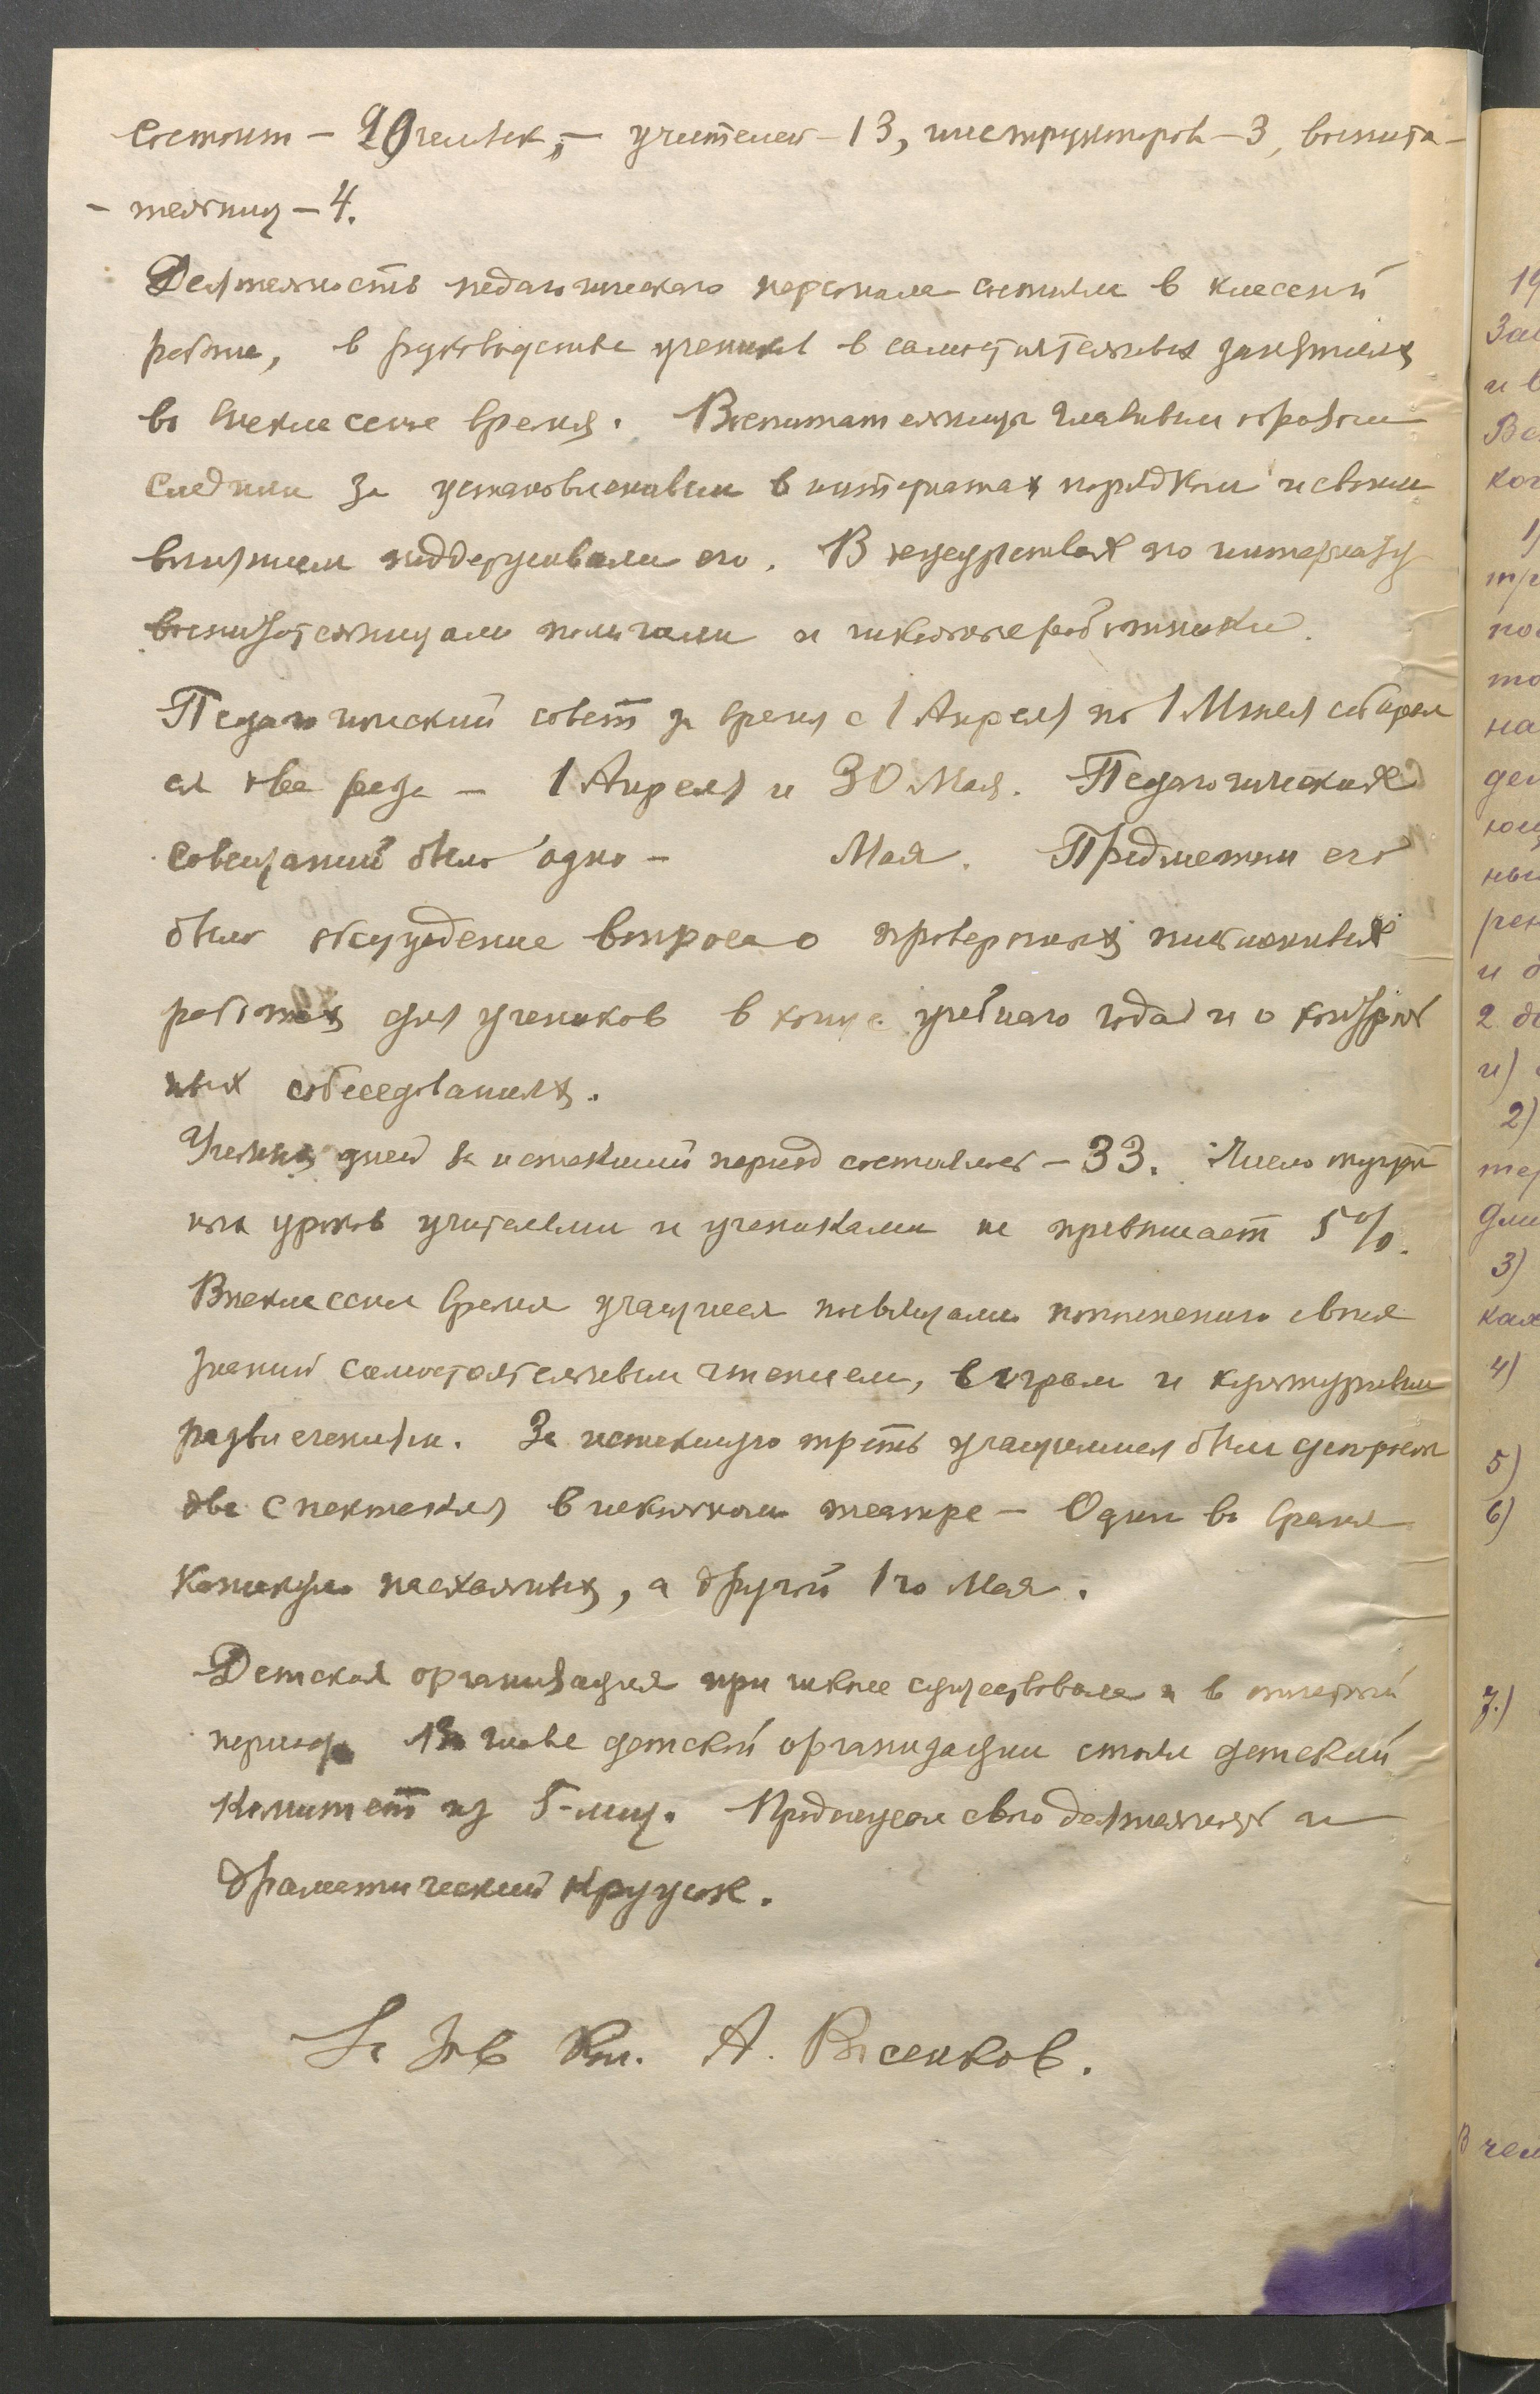 состоит – 20 человек, – учителей – 13, инструкторов – 3, воспита-
- тельниц – 4.
Деятельность педагогического персонала состояла в классной
работе, в руководстве учеников в самостоятельных занятиях
во внеклассное время. Воспитательницы главным образом
следили за установленным в интернатах порядком и своим
влиянием поддерживали его. В дежурствах по интернату
воспитательницам помогали и школьные работники.
Педагогический совет за время с 1 Апреля по 1 Июня собирал
ся два раза – 1 Апреля и 30 Мая. Педагогических
совещаний было одно – Мая. Предметом его
было обсуждение вопроса о проверочных письменных
работах для учеников в конце учебного года и о контроль
ных собеседованиях.
Учебных дней за истекший период состоялось – 33. Число пропущен
ных уроков учителями и учениками не превышает 5%.
Внеклассное время учащиеся посвящали пополнению своих
знаний самостоятельным чтением, играм и культурным
развлечениям. За истекшую треть учащимися были устроены
два спектакля в школьном театре – Один во время
каникул пасхальных, а другой 1го Мая.
Детская организация при школе существовала и в отчетный
период. Во главе детской организации стоял детский
Комитет из 5 лиц. Продолжал свою деятельность и
драматический кружок.
А. Васенков.
19
и в
ког
1)
на
2)
3)
4)
5)
6)
7.)